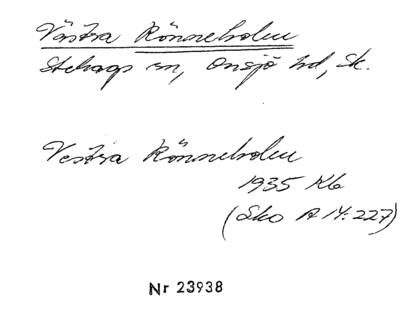 Västra Rönneholm
Stehags sn, Onsjö hd, Sk.
Vestra Rönneholm
1935 Kb
(Sko A 14:227)
Nr 23938